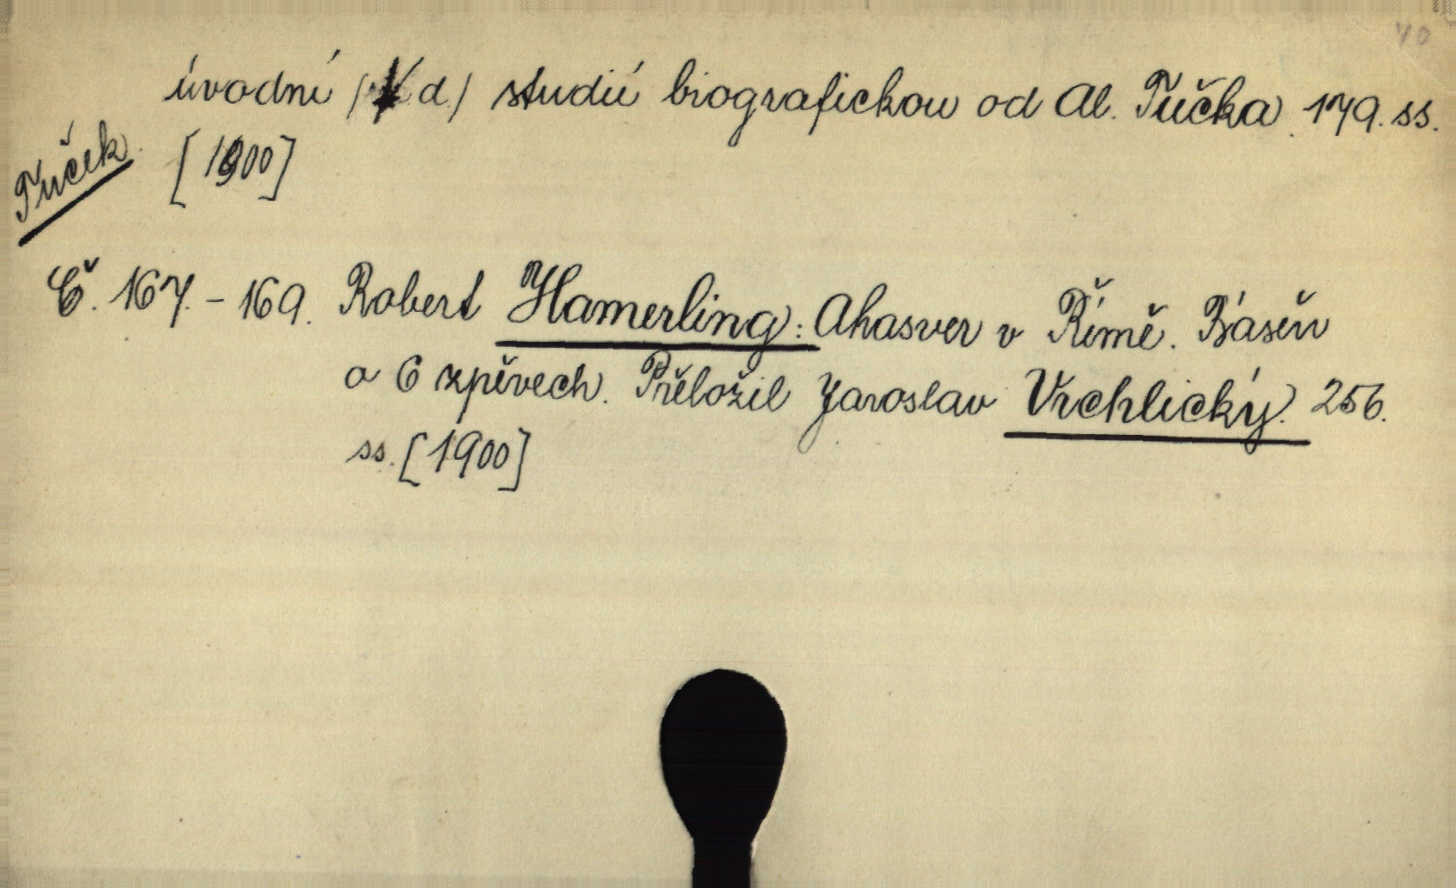 70
úvodní (V d.) studií biografickou od Al. Tučka. 179. ss.
Tuček.
[1900]
Č. 167. - 169. Robert Hamerling: Ahasver v Římě. Báseň
o 6 zpěvech. Přeložil Jaroslav Vrchlický. 256.
ss. [1900]